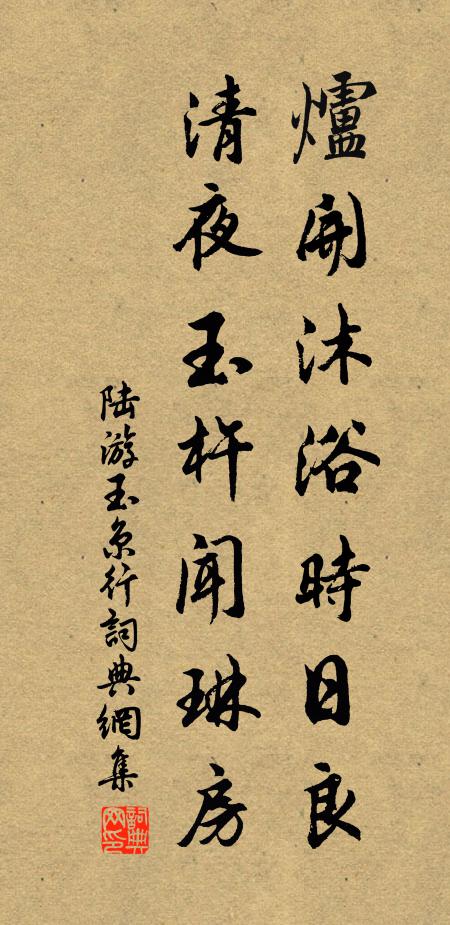 爐開沐浴時日良
清夜玉杵聞琳房
陆游玉京行詞典網集
詞典网印